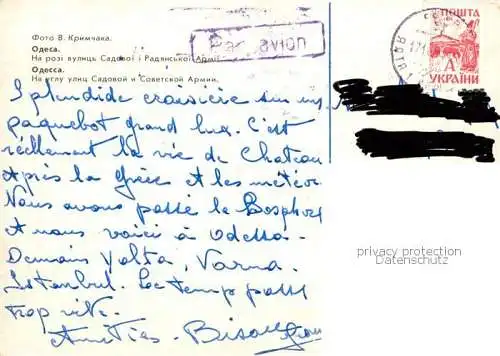 Фото В. Кримчака.
Одеса.
На розі вулиць Садової і Радянської Армії
Одесса.
На углу улиц Садовой и Советской Армии.
Par avion
ПОШТА
А
УКРАЇНИ
Splendide croisière sur un
paquebot grand lux. C'est
réellement la vie de Chateau
Après la Grèce et les météor
Nous avons passé le Bosphore
et nous voici à Odessa.
Demain Yalta, Varna.
Istanbul. Le temp passe
trop vite.
Amitiés. Bisous
privacy protection
Datenschutz